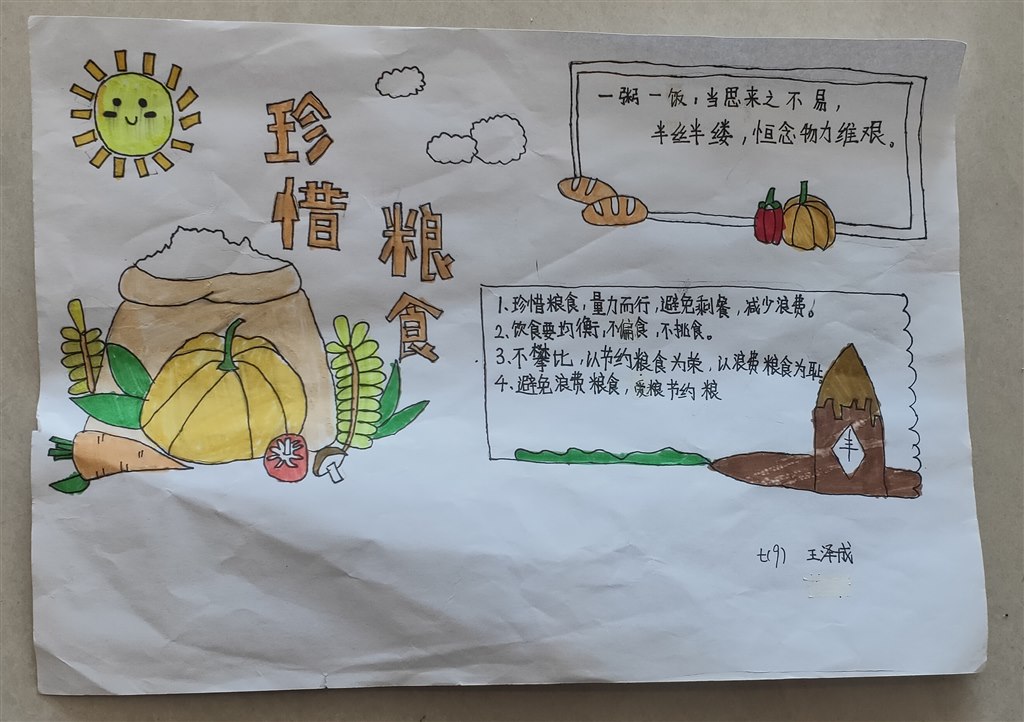 珍惜
粮食
一粥一饭,当思来之不易,
半丝半缕,恒念物力维艰。
1.珍惜粮食,量力而行,避免剩餐,减少浪费!
2.饮食要均衡,不偏食,不挑食。
3.不攀比,认节约粮食为荣,认浪费粮食为耻。
4.避免浪费粮食,爱粮节约粮
丰
七(9) 王泽成